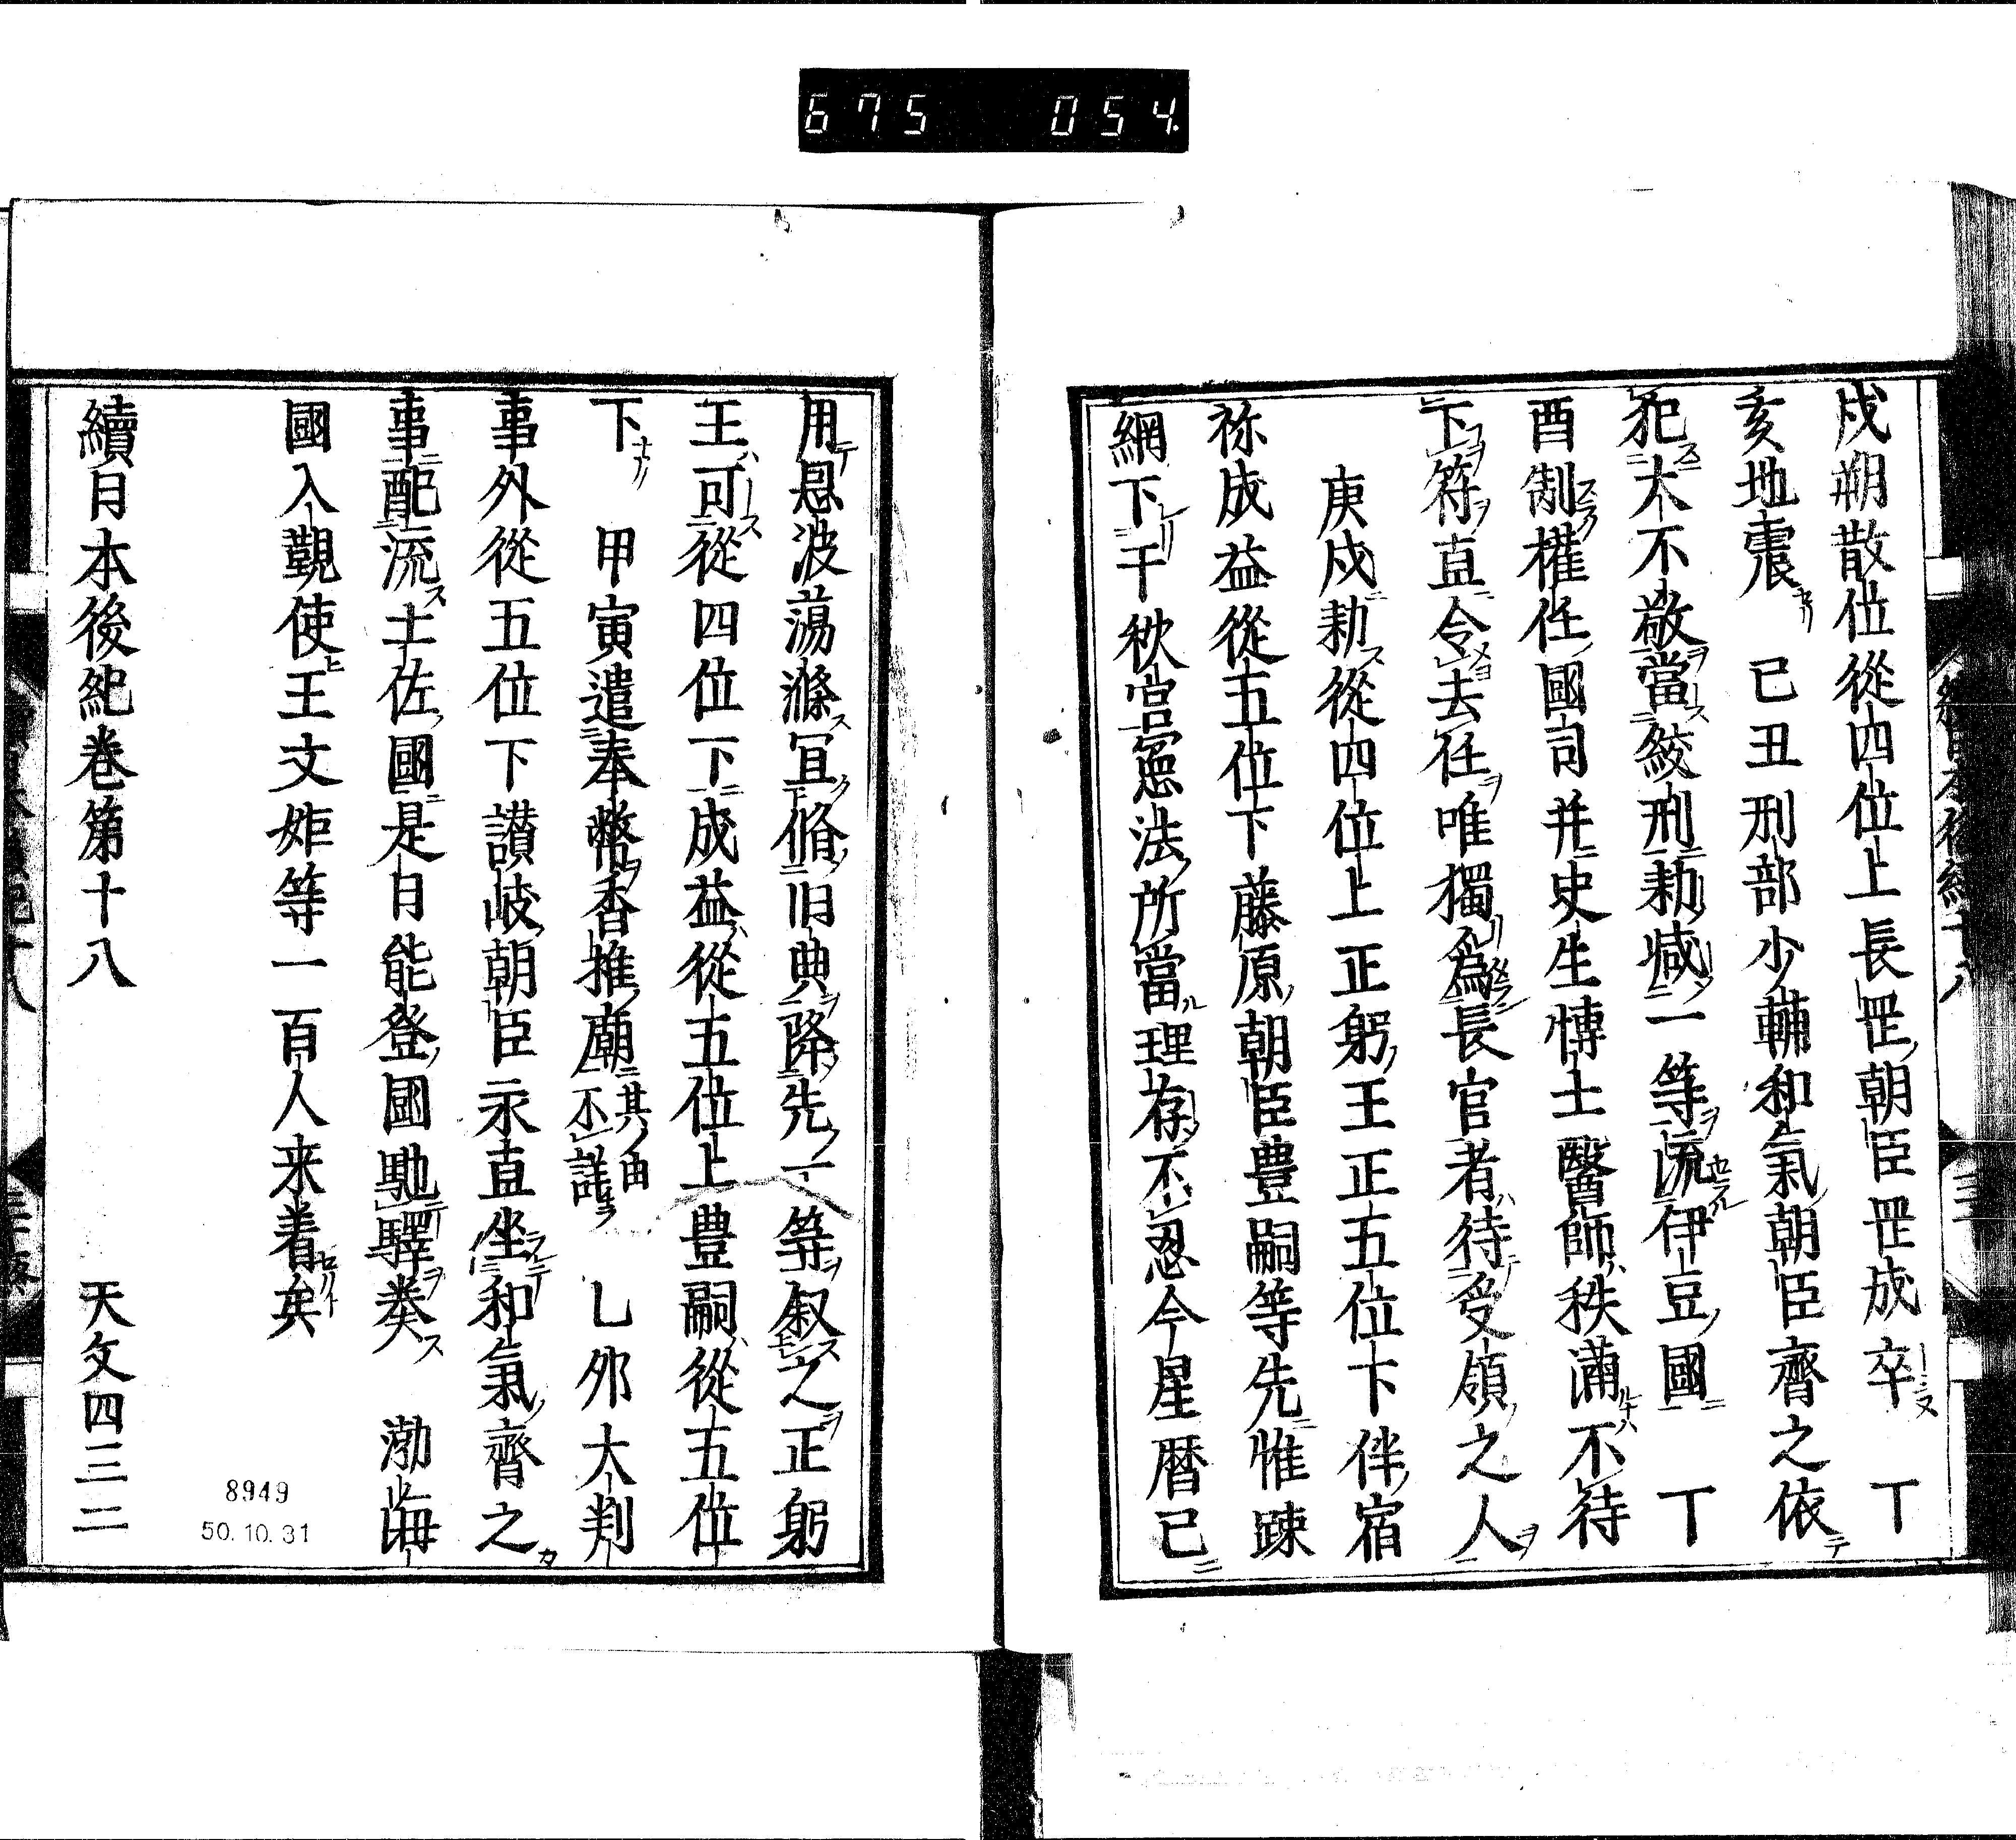 675 054
戌朔散位從四位上長罡朝臣罡成卒　丁
亥地震　已丑刑部少輔和氣朝臣齊之依
犯大不敬當絞刑勑減一等流伊豆國　丁
酉制權任國司并史生博士醫師秩滿不待
下符直令去任唯獨爲長官者待受領之人
庚戌勑從四位上正躬王正五位下伴宿
祢成益從五位下藤原朝臣豊嗣等先惟疎
網下干秋官寃法所當理存不忍今星曆已
用恩波蕩滌冝脩旧典降先一等叙之正躬
王可從四位下成益從五位上豊嗣從五位
下　甲寅遣奉幣香推廟其由不詳　乙夘大判
事外從五位下讃岐朝臣永直坐和氣齊之
事配流土佐國是日能登國馳驛奏　渤海
國入覲使王文矩等一百人来着矣
續日本後紀卷第十八　天文四三二
8949
50.10.31